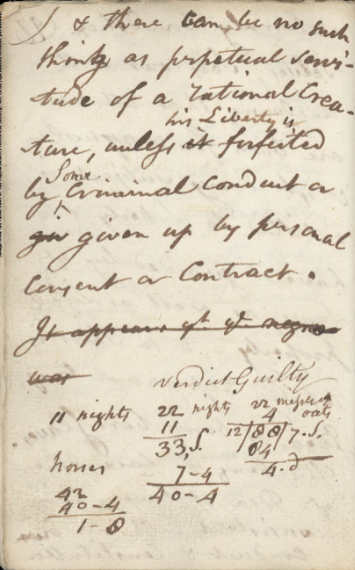 & there can be no such
thing as perpetual servi-
tude of a rational Crea-
his Liberty is
ture, unless it forfeited
Some
by Criminal Conduct or
giv given up by personal
Consent or Contract.
It appears yt ye negroe
was
verdict Guilty
11 nights 22 nights 22 mess
4 oats
11 12/88/7.S.
33,S. 84
horses 7-4 4.d
42 40-4
40-4
1-8